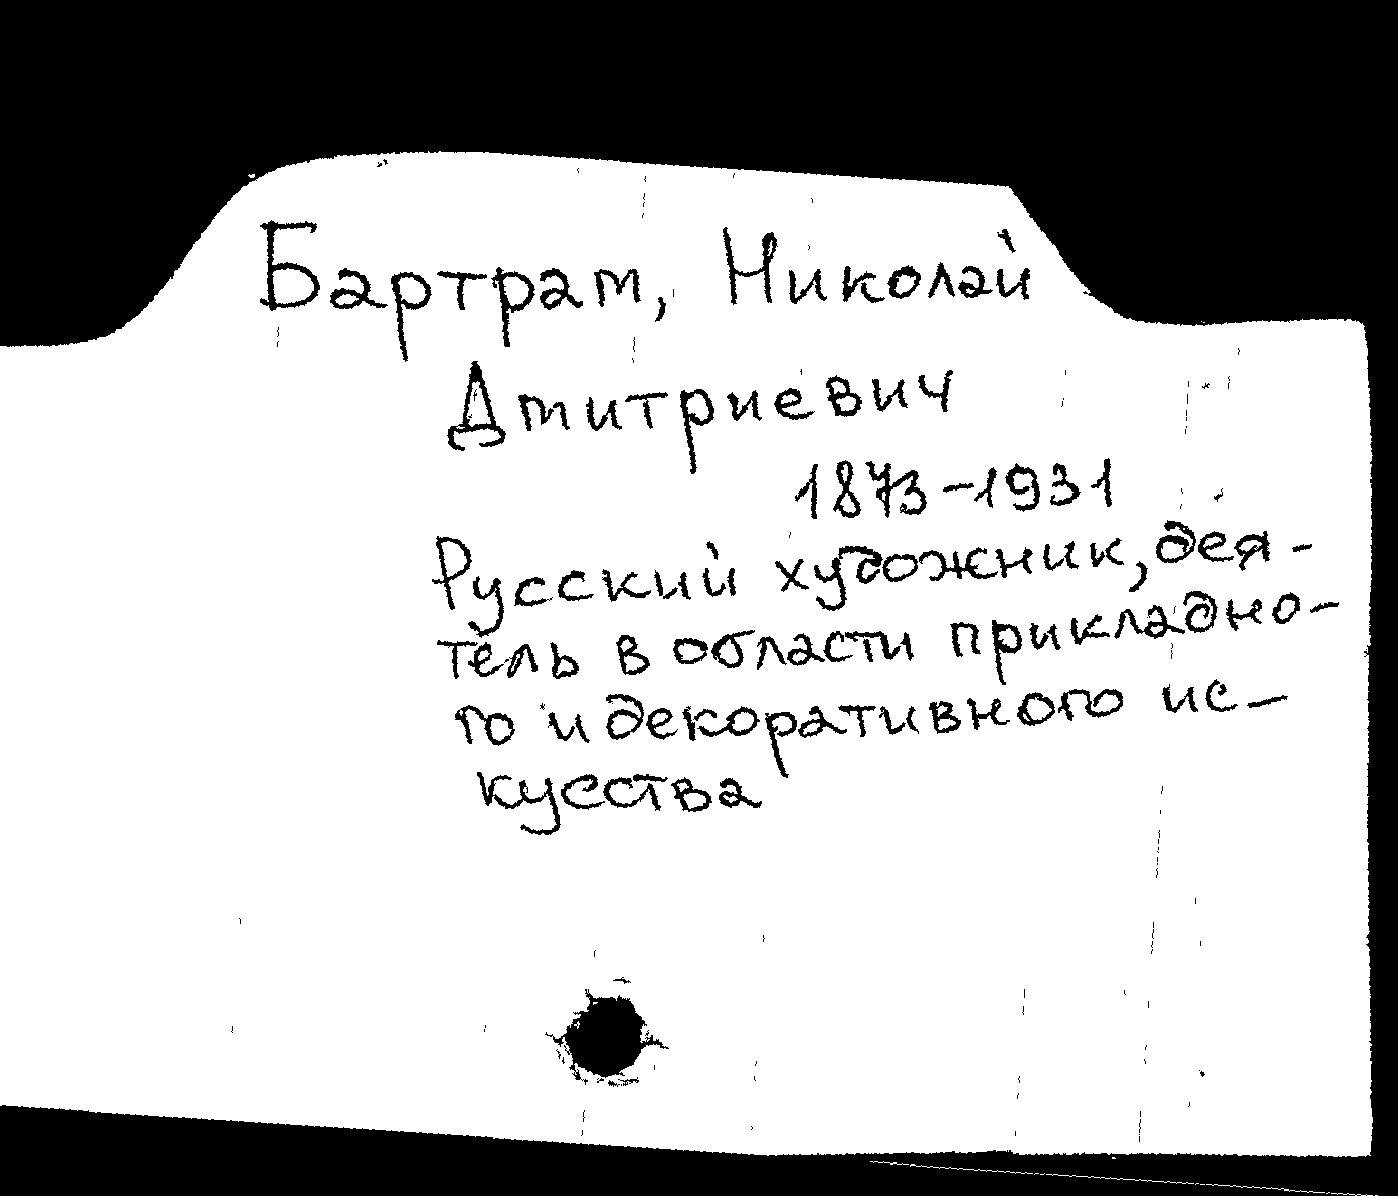 Бартрам, Николай
Дмитриевич
1873-1931
Русский художник, дея-
тель в области прикладно-
го и декоративного ис-
кусства